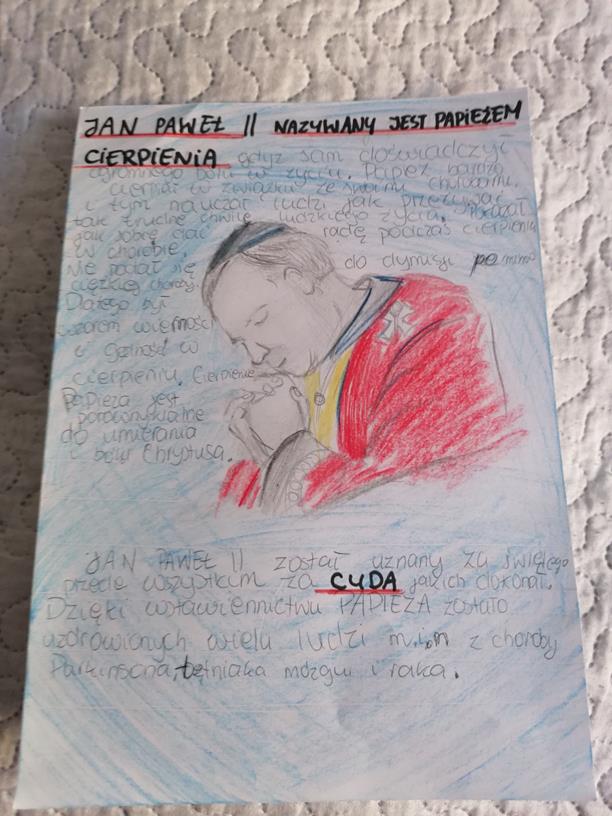 JAN PAWEŁ II NAZYWANY JEST PAPIEŻEM
CIERPIENIA gdyż sam doświadczył
ogromnego bólu w życiu. Papież bardzo
cierpiał w związku ze swoimi chorobami,
i tym nauczał ludzi jak przeżywać
tak trudne chwile ludzkiego życia. Pokazał
jak sobie dać radę podczas cierpienia
w chorobie.
Nie podał się do dymisji pomimo
ciężkiej choroby.
Dlatego był
wzorem wierności
i godności w
cierpieniu. Cierpienie
Papieża jest
porównywalne
do umierania
i bólu Chrystusa.
JAN PAWEŁ II został uznany za świętego
przede wszystkim za CUDA jakich dokonał.
Dzięki wstawiennictwu PAPIEŻA zostało
uzdrowionych wielu ludzi m.in z choroby
Parkinsona, tętniaka mózgu i raka.